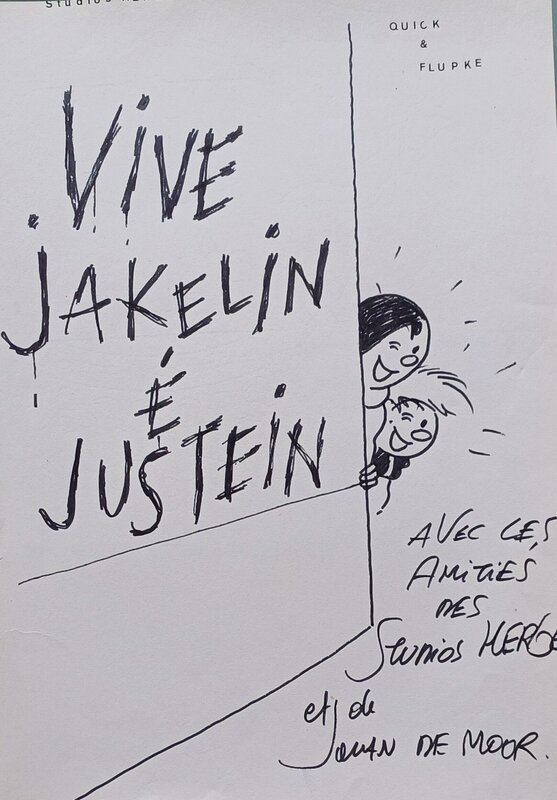 Studios HER
QUICK
&
FLUPKE
VIVE
JAKELIN
É
JUSTEIN
AVEC LES
AMITIÉS
DES
STUDIOS HERGÉ
et de
JOHAN DE MOOR.